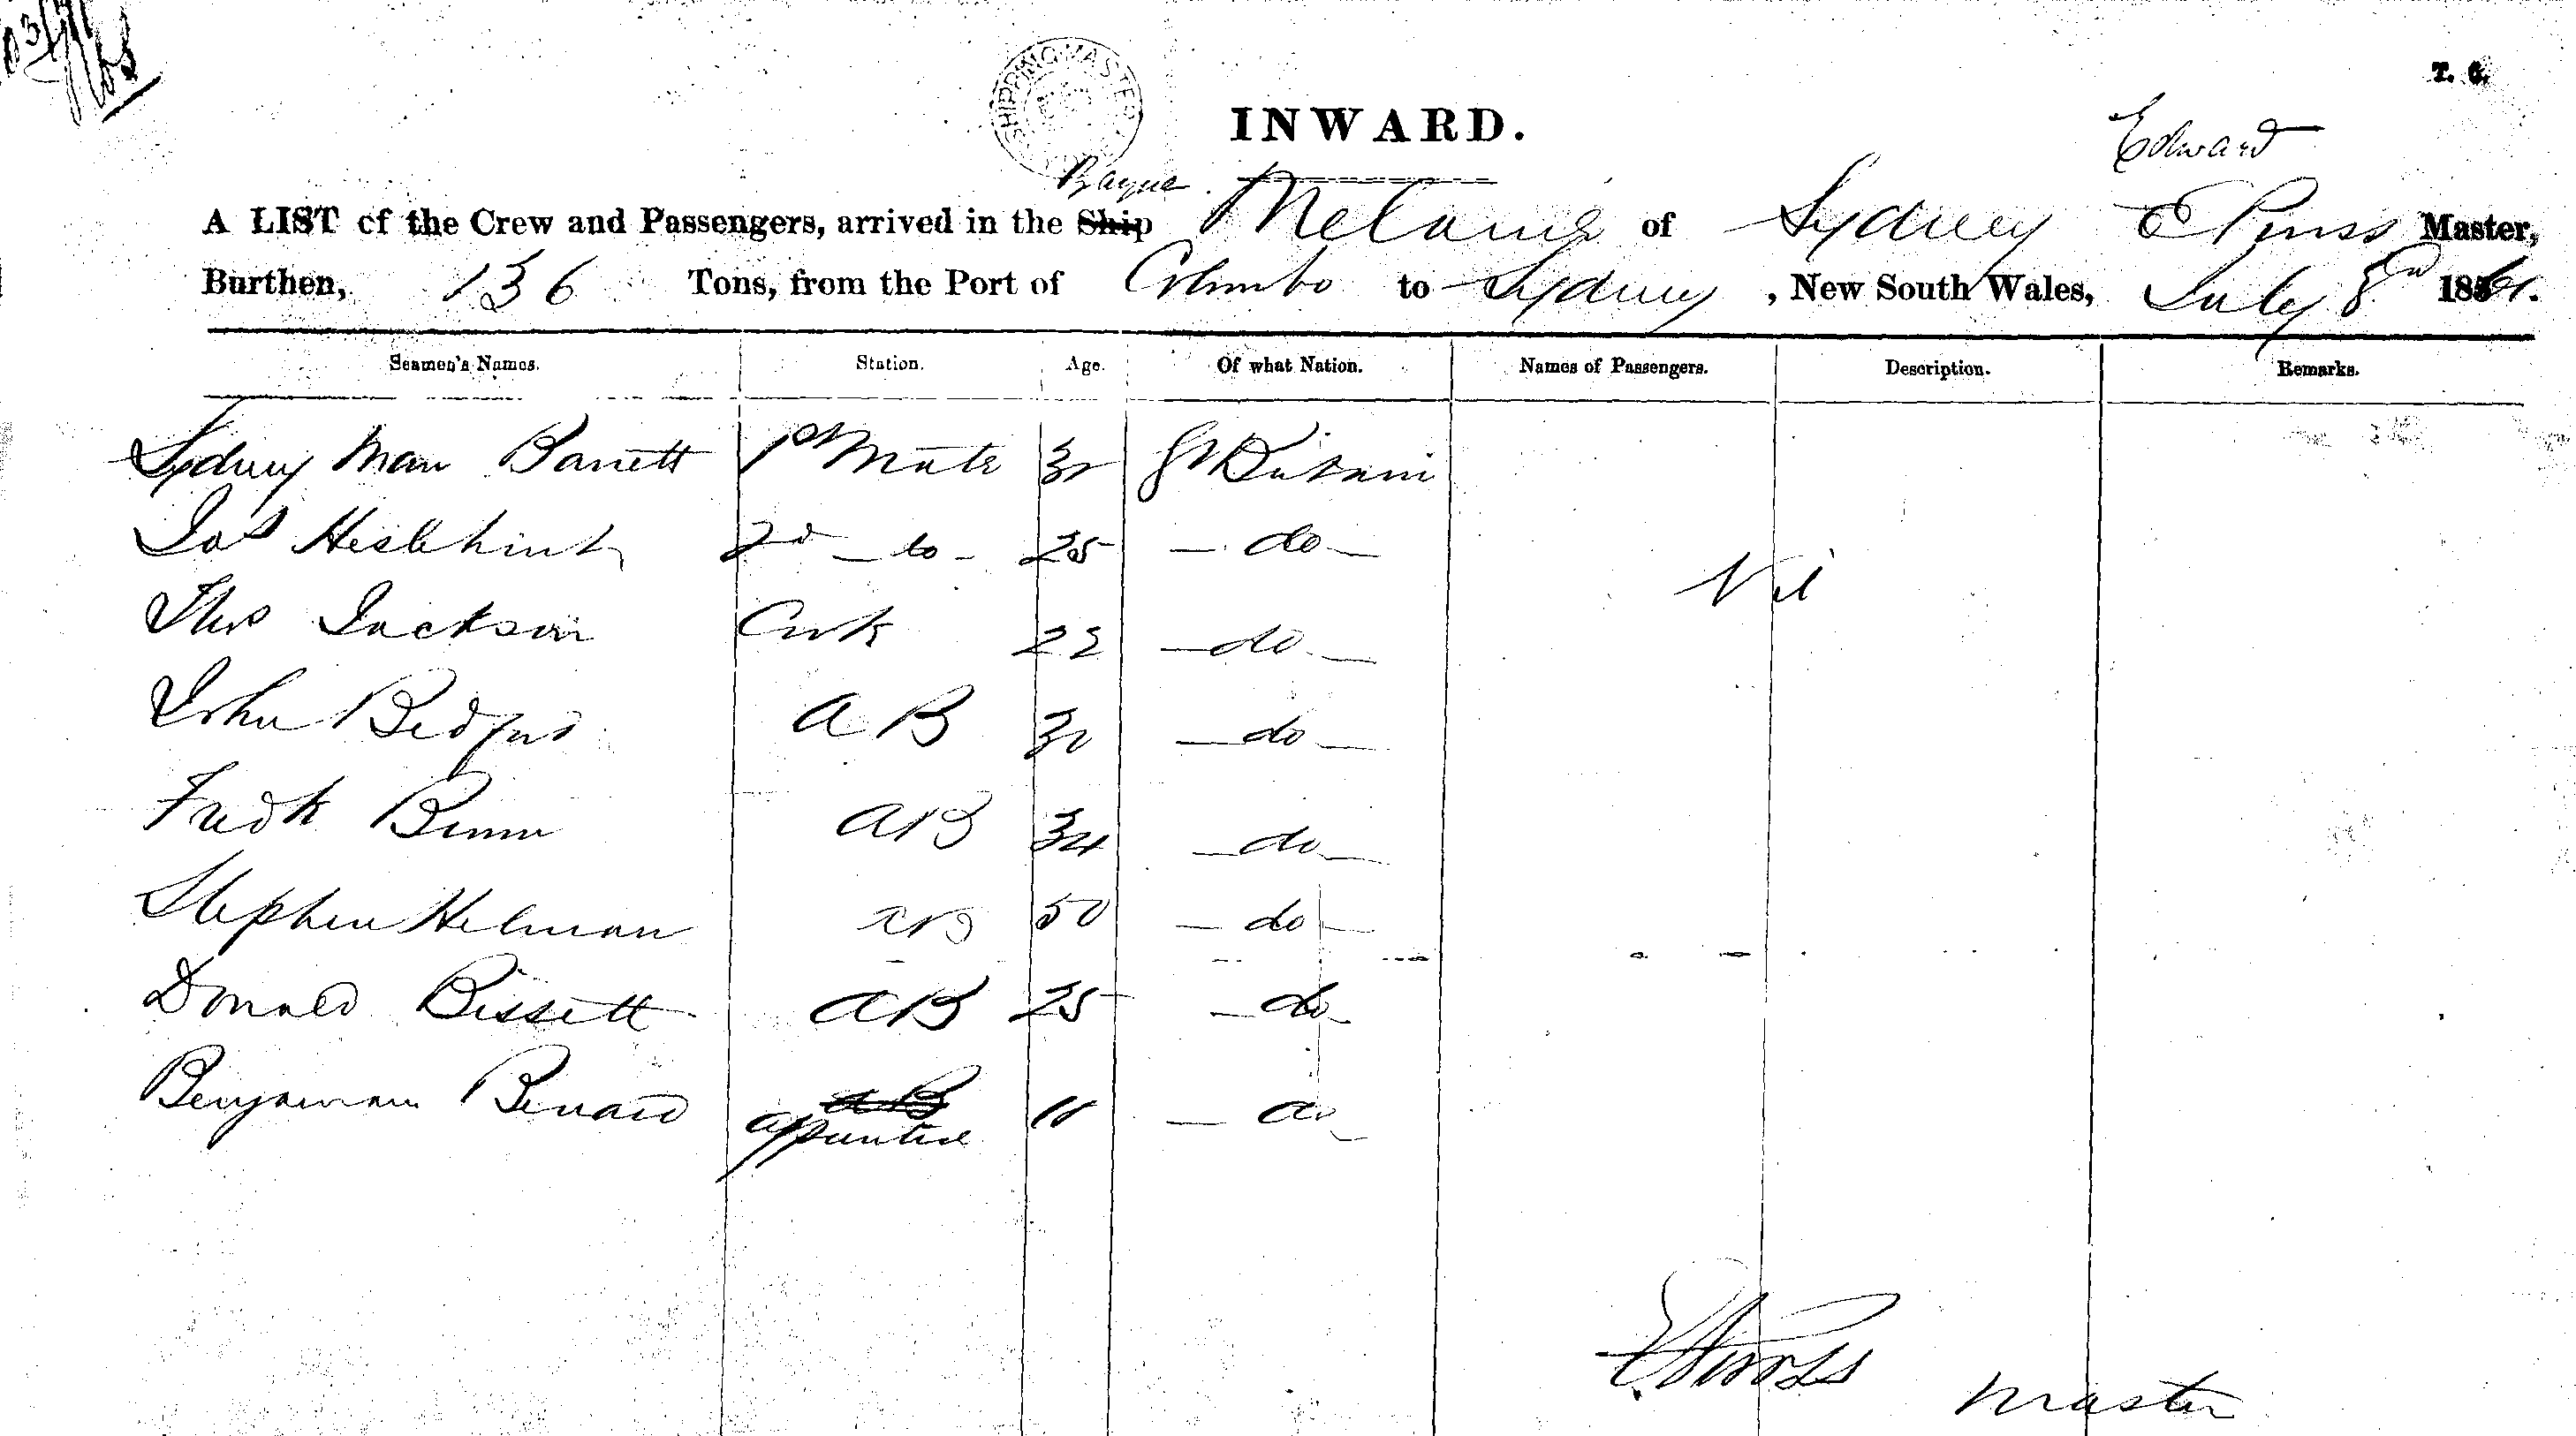 T. C.
INWARD.
Edward
Barque
A LIST of the Crew and Passengers, arrived in the Ship Melanie of Sydney E Pinss Master,
Burthen, 136 Tons, from the Port of Colombo to Sydney, New South Wales, July 8th 1861.
Seamen's Names. Station. Age. Of what Nation. Names of Passengers. Description. Remarks.
Sydney Man Barrett 1st Mate Gt Britain
Jas 2d - do - 25 - do -
Thos Jackson Cook 22 - do -
John Bedford A B 30 - do -
Fredk AB 34 - do -
Nil
Stephen Helman AB 50 - do -
Donald Bissett AB 25 - do -
Benjamin AB - do -
apprentice
Master